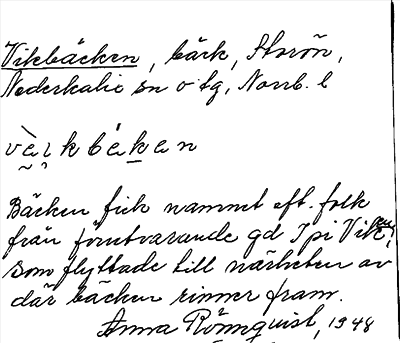 Vikbäcken, bäck, Storön,
Nederkalix sn o tg, Norrb. l
Bäcken fick namnet eft. folk
från förutvarande gd I pi Viken,
som flyttade till närheten av
där bäcken rinner fram.
Anna Rönnquist, 1948